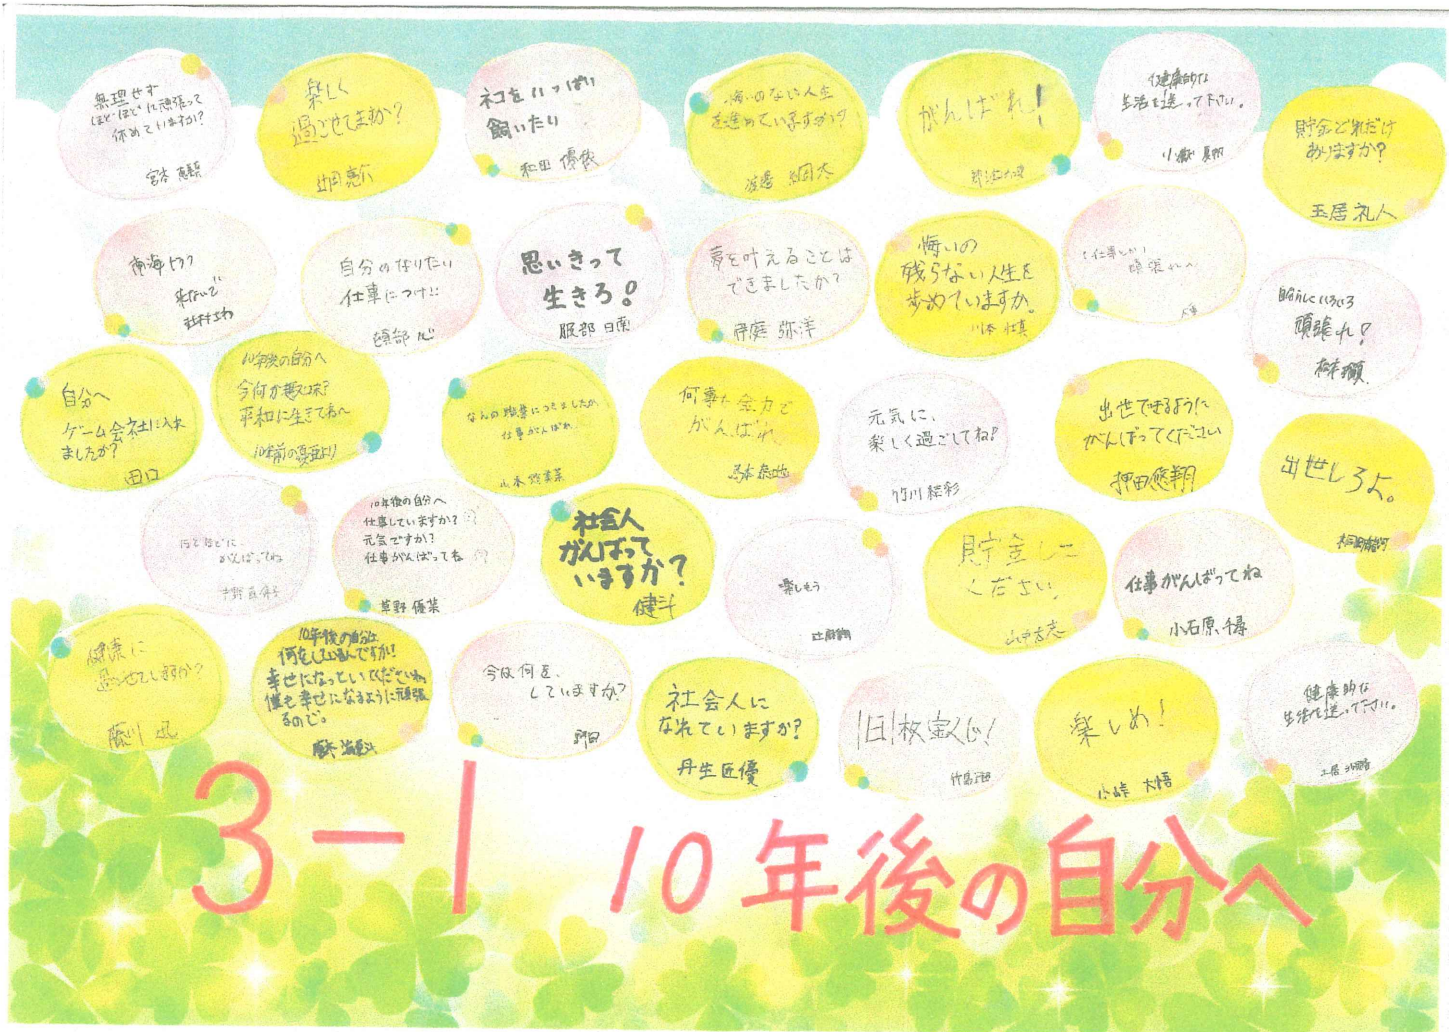 無理せず
ほどほどに頑張って
休めていますか?
宮本
楽しく
過ごせてますか?
ネコをいっぱい
飼いたり
和田 優依
悔いのない人生
を進めていますか?
渡邉
がんばれ!
健康的な
生活を送って下さい。
貯金どれだけ
ありますか?
玉居 礼人
南海トラフ
来ないで
自分のなりたい
仕事につけ!!
思いきって
生きろ。
服部 日南
夢を叶えることは
できましたか?
伊庭 弥洋
悔いの
残らない人生を
歩めていますか。
川本
仕事しっかり
頑張れへ
自分らしくいろいろ
頑張れ!
自分へ
ゲーム会社に入れ
ましたか?
田口
10年後の自分へ
今何が趣味?
平和に生きてねへ
10年前の より
なんの職業につきましたか
仕事がんばれ
何事も全力で
がんばれ
元気に、
楽しく過ごしてね!
竹川 結彩
出世できるように
がんばってください
押田悠翔
出世しろよ。
ほどほどに、
がんばってね
10年後の自分へ
仕事していますか?
元気ですか?
仕事がんばってね
草野 優菜
社会人
がんばって
いますか?
健斗
楽しもう
貯金して
ください
仕事がんばってね
小石原 千尋
健康に
過ごせてしますか?
藤川
10年後の自分は
何をしているんですか!
幸せになっといてくださいね
僕も幸せになるように頑張
るので。
今は何を、
していますか?
野田
社会人に
なれていますか?
丹生 匠優
1日1枚宝くじ!
楽しめ!
小峠 大悟
健康的な
生活を送ってください。
土居
3-1 10年後の自分へ